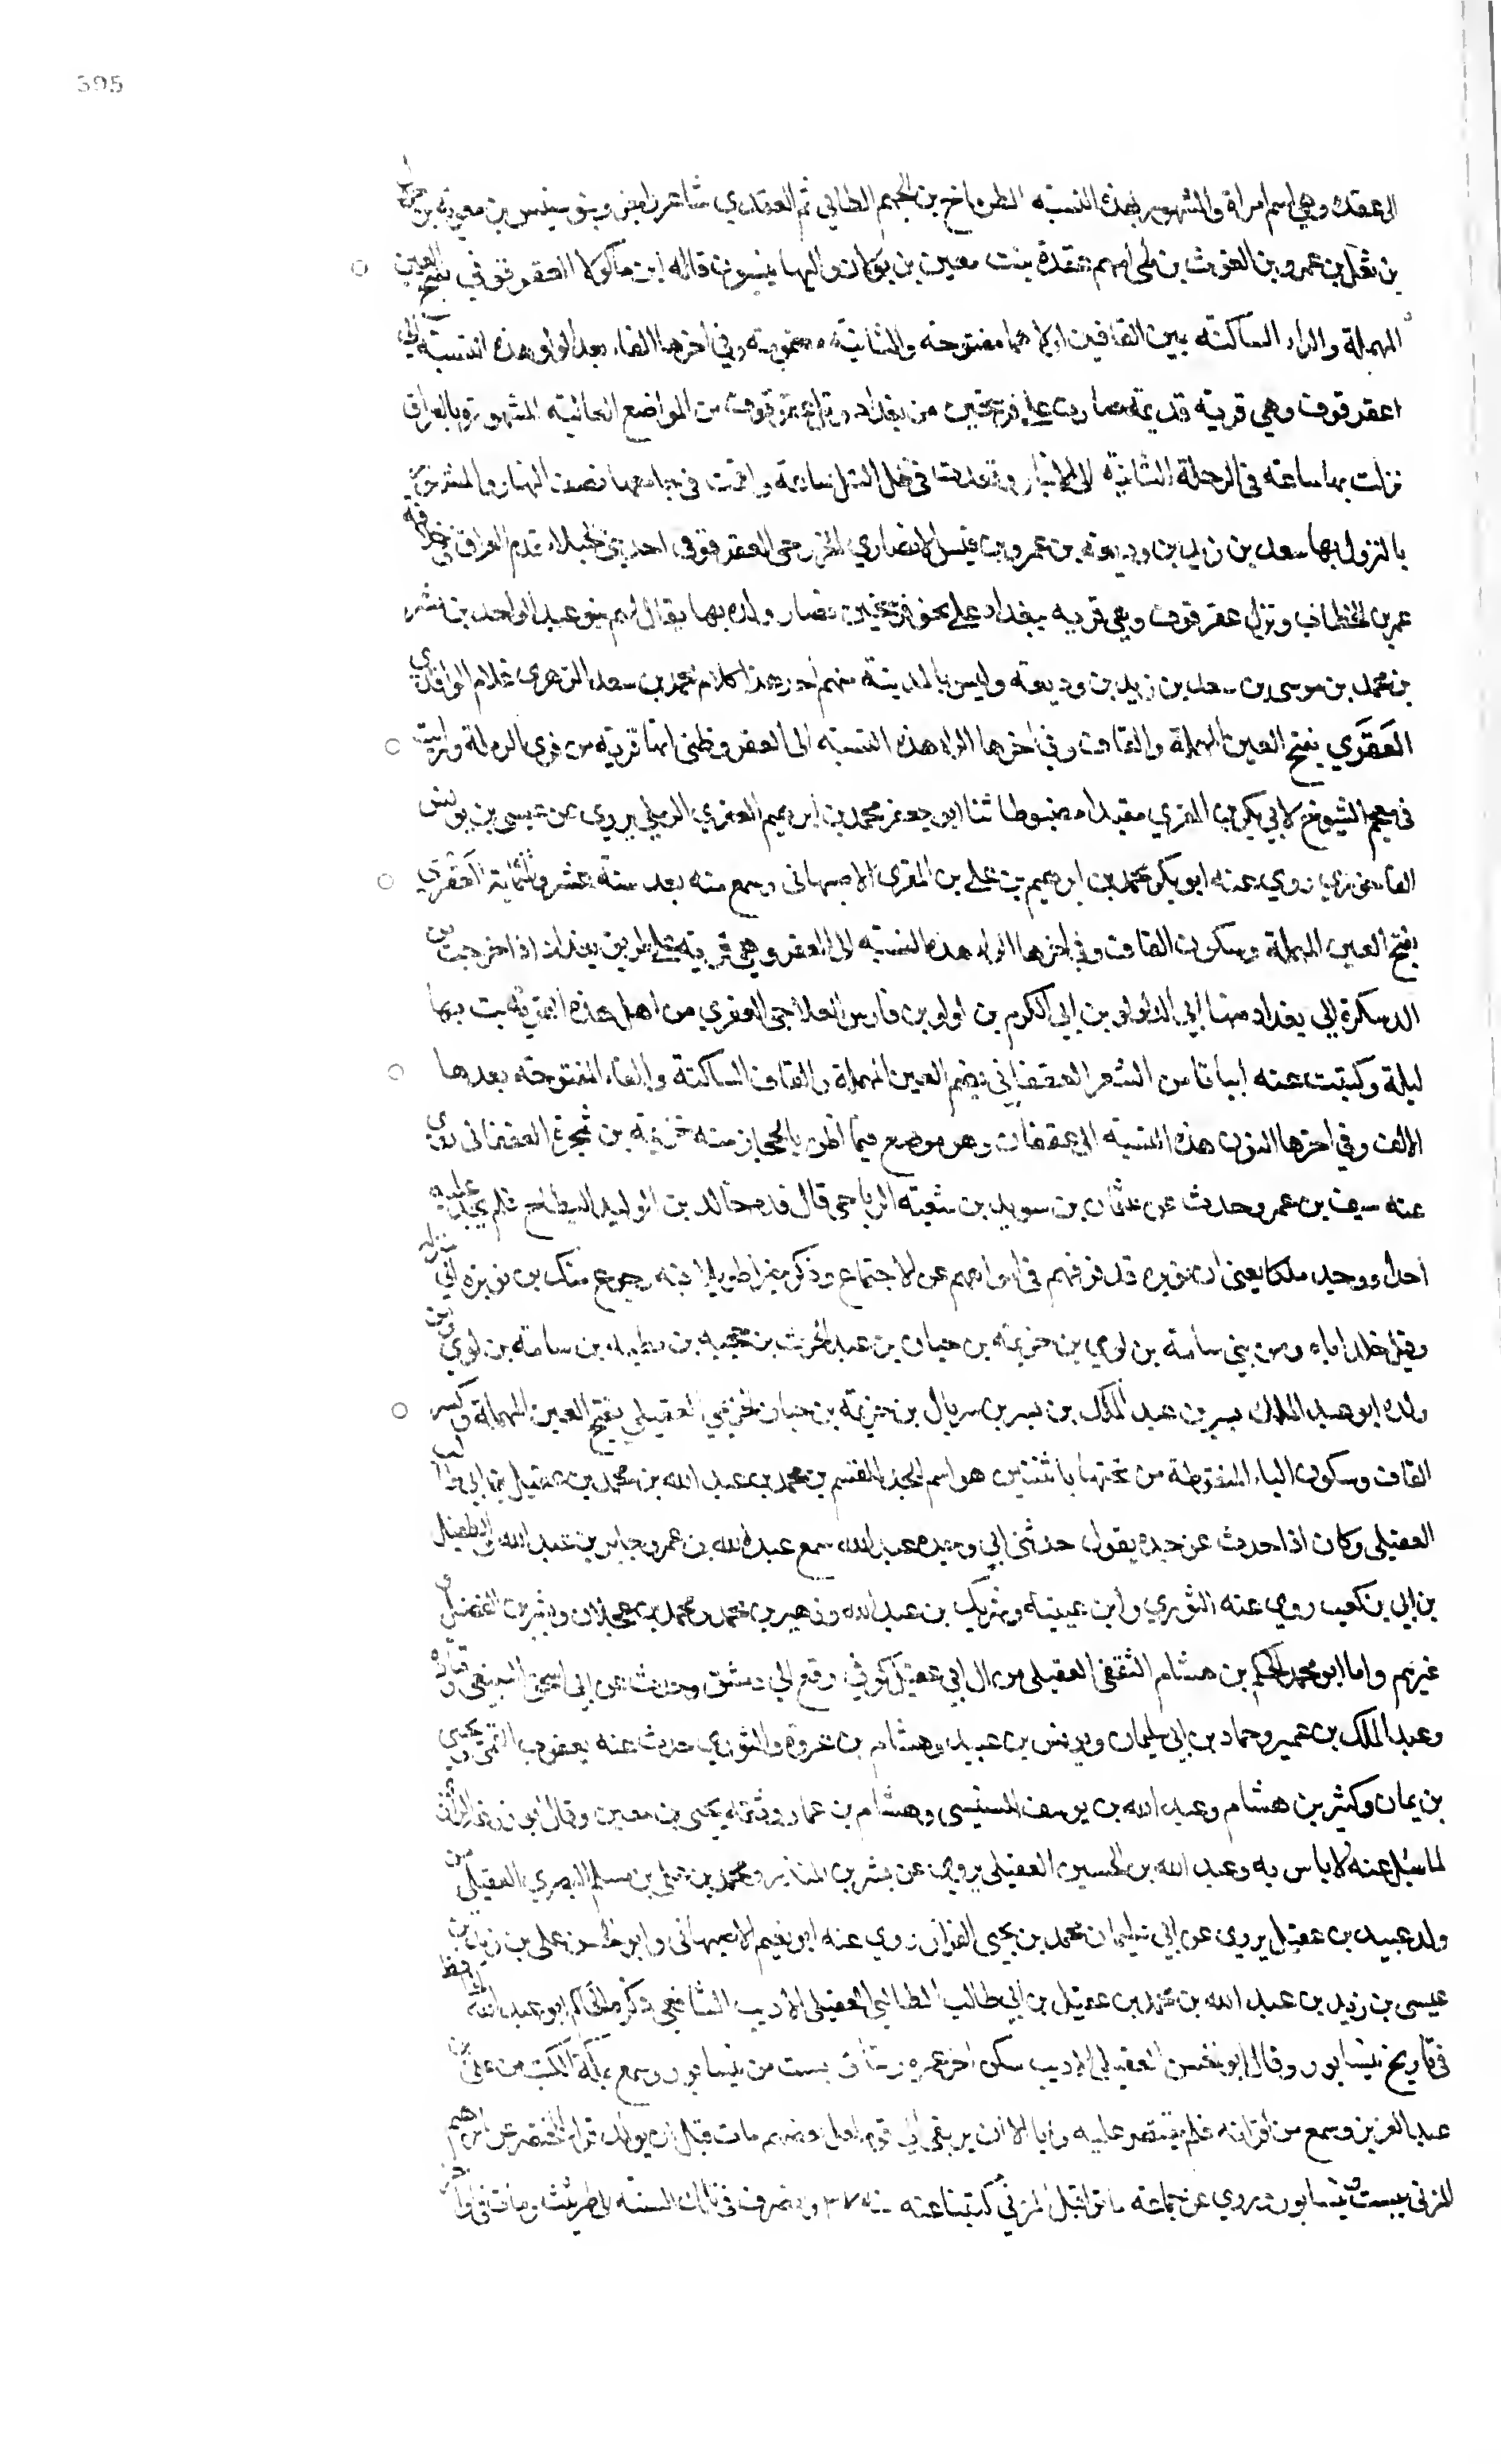 395
الى عقده وهي اسم امراة والمشهور بهذه النسبة الطرماح بن الجهم الطائي ثم العقدي شاعر وبنو سنبس بن معوية بن
بن ثعل بن عمرو بن الغوث بن طي امهم عقدة بنت معين بن بولان واليها ينسبون قاله ابن ماكولا العقرقوفي بفتح العين
المهملة والراء الساكنة بين القافين اولاهما مفتوحة والثانية مضمومة وفي اخرها الفاء بعد الواو هذه النسبة الى
عقرقوف وهي قرية قديمة على فرسخين من بغداد عقرقوف من المواضع المشهورة بالعراق
نزلت بها ساعة في الرحلة الثانية الى الانبار وقعدت في ظل التل ساعة في جامعها نصف النهار
بالنزول بها سعد بن زيد بن وديعة بن عمرو بن قيس الانصاري الخزرجي العقرقوفي احد بني الحبلاء قدم العراق في خلافه
عمر بن الخطاب ونزل عقرقوف وهي قرية ببغداد على نحو فرسخين فصار ولده بها يقال لهم بنو عبد الواحد بن بشر
بن محمد بن موسى بن سعد بن زيد بن وديعة وليس بالمدينة منهم احد هذا كلام محمد بن سعد الزهري غلام الواقدي
العَقَري بفتح العين المهملة والقاف وفي اخرها الراء هذه النسبة الى العقر وظني انها قرية من قرى الرملة ورايت
في معجم الشيوخ لابي بكر بن المقري مقيدا مضبوطا ثنا ابو جعفر محمد بن ابرهيم العقري الرملي يروي عن عيسى بن يونس
الفاخوري روى عنه ابو بكر محمد بن ابرهيم بن علي بن المقرى الاصبهانى وسمع منه بعد سنة عشر وثلثماية العَقْري
بفتح العين المهملة وسكون القاف وفي اخرها الراء هذه النسبة الى العقر وهي قرية على طريق بغداد اذا خرجت من
الدسكرة الى بغداد منها ابي الدر لولو بن ابي الكرم بن لولو بن فارس العقري من اهل هذه القرية بت بها
ليلة وكتبت عنه ابياتا من الشعر العقفاني بضم العين المهملة والقاف الساكنة والفاء المفتوحة بعدها
الالف وفي اخرها النون هذه النسبة الى عقفان وهو موضع فيما اظن بالحجاز منه خزيمة بن شجرة العقفانى روى
عنه سيف بن عمر وحدث عن عثمان بن سويد بن شعبة الرياحي قال قدم خالد بن الوليد البطاح فلم يجد عليه
احدا ووجد ملكا يعنى ابن نويره قد فرقهم في اموالهم عن الاجتماع وذكر خبرا طويلا
وفي خلد اباه ومن بني سامة بن لوي بن خزيمة بن حيان بن عبد الحرث بن سامة بن لوي
ولده ابو عبد الملك بسر بن عبد الملك بن بسر بن سربال بن خزيمة بن حيان العقيلي بفتح العين المهملة وكسر
القاف وسكون الياء المنقوطة من تحتها باثنتين هو اسم لجد القسم بن محمد بن عبد الله بن محمد بن عقيل بن ابي طالب
العقيلى وكان اذا حدث عن جده يقول حدثنى ابي وجده عبد الله سمع عبد الله بن عمر وجابر بن عبد الله والطفيل
بن ابي بن كعب روى عنه الثوري وابن عيينه وشريك بن عبد الله وزهير بن محمد ومحمد بن عجلان وبشر بن المفضل و
غيرهم واما ابو محمد الحكم بن هشام الثقفى العقيلى من ال ابي عقيل كوفي وقع الى دمشق وحدث عن ابى اسحق السبيعى وقتاده
وعبد الملك بن عمير وحماد بن ابي سليمان ويونس بن عبيد وهشام بن عروة والثوري حدث عنه يعقوب القمي ويحيى
بن يمان وكثير بن هشام وعبد الله بن يوسف التنيسى وهشام بن عمار وثقه يحيى بن معين وقال ابو زرعه الرازى
لما سئل عنه لا باس به وعبد الله بن الحسين العقيلى يروي عن بشر بن المنذر ومحمد بن علي بن مسلم البصري العقيلى من
ولد عبيد بن عقيل يروى عن ابي سليمان محمد بن يحيى القزاز روى عنه ابو نعيم الاصبهانى وابو علي بن زيد بن
عيسى بن زيد بن عبد الله بن محمد بن عقيل بن ابي طالب الطالبي العقيلى الاديب الشافعي ذكره الحاكم ابو عبد الله الحافظ
في تاريخ نيسابور وقال ابو العقيلي الاديب سكن اخر عمره بست من نيسابور وسمع بمكة الكتب من على بن
عبد العزيز وسمع من اقرانه فلم يقتصر عليه وابا الا ان يرتقى الى قوم مات قبل ان يولد المختصر عن ابرهيم
المزنى ببست نيسابور وروى عن جماعة ماتوا قبل المزني كتبنا عنه وانصرف في تلك السنة الى طريثيث ومات